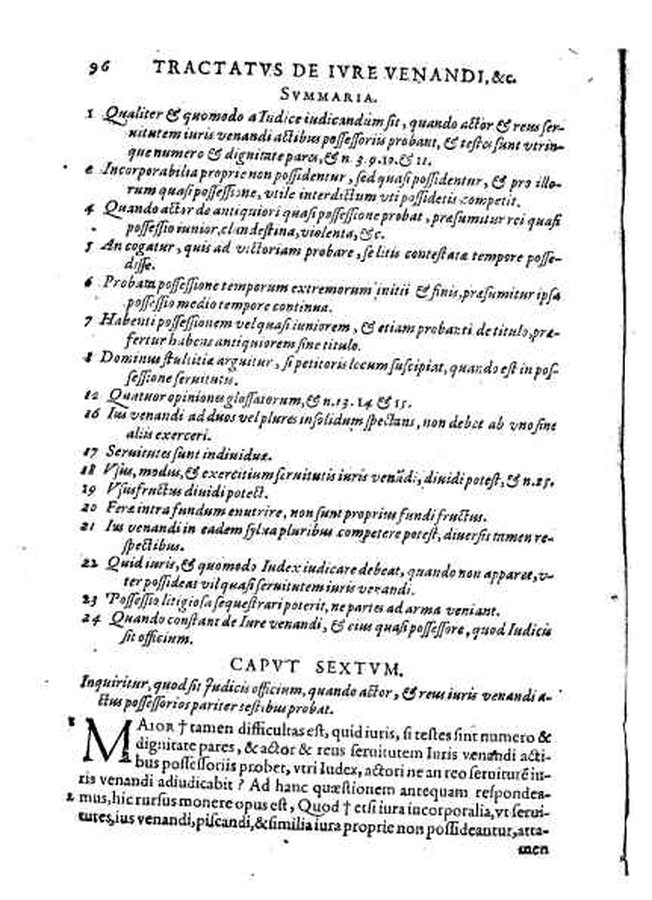 96 TRACTATVS DE IVRE VENANDI, &c.
SVMMARIA.
1 Qualiter & quomodo a Iudice iudicandum sit, quando actor & reus ser-
uitutem iuris venandi actibus possessoriis probant, & testes sunt vtrin-
que numero & dignitate pares, & n. 3. 9. 10. & 11.
2 Incorporabilia proprie non possidentur, sed quasi possidentur, & pro illo-
rum quasi possessione, vtile interdictum vti possidetis competit.
4 Quando actor de antiquiori quasi possessione probat, præsumitur rei quasi
possessio iunior, clandestina, violenta, &c.
5 An cogatur, quis ad victoriam probare, se litis contestatæ tempore posse-
disse.
6 Probata possessione temporum extremorum initii & finis, præsumitur ipsa
possessio medio tempore continua.
7 Habenti possessionem vel quasi iuniorem, & etiam probanti de titulo, præ-
fertur habens antiquiorem sine titulo.
8 Dominus stultitiæ arguitur, si petitoris locum suscipiat, quando est in pos-
sessione seruitutis.
12 Quatuor opiniones glossatorum, & n. 13. 14 & 15.
16 Ius venandi ad duos vel plures in solidum spectans, non debet ab vno sine
aliis exerceri.
17 Seruitutes sunt indiuiduæ.
18 Vsus, modus, & exercitium seruitutis iuris venādi, diuidi potest, & n. 25.
19 Vsusfructus diuidi potest.
20 Feræ intra fundum enutrire, non sunt proprius fundi fructus.
21 Ius venandi in eadem sylua pluribus competere potest, diuersis tamen re-
spectibus.
22 Quid iuris, & quomodo Iudex iudicare debeat, quando non apparet, v-
ter possideat vel quasi seruitutem iuris venandi.
23 Possessio litigiosa sequestrari poterit, ne partes ad arma veniant.
24 Quando constant de Iure venandi, & eius quasi possessore, quod Iudicis
sit officium.
CAPVT SEXTVM.
Inquiritur, quod sit Iudicis officium, quando actor, & reus iuris venandi a-
ctus possessorios pariter testibus probat.
1 MAIOR † tamen difficultas est, quid iuris, si testes sint numero &
dignitate pares, & actor & reus seruitutem Iuris venandi acti-
bus possessoriis probet, vtri Iudex, actori ne an reo seruitutē iu-
ris venandi adiudicabit? Ad hanc quæstionem antequam respondea-
2 mus, hic rursus monere opus est, Quod † etsi iura incorporalia, vt serui-
tutes, ius venandi, piscandi, & similia iura proprie non possideantur, atta-
men